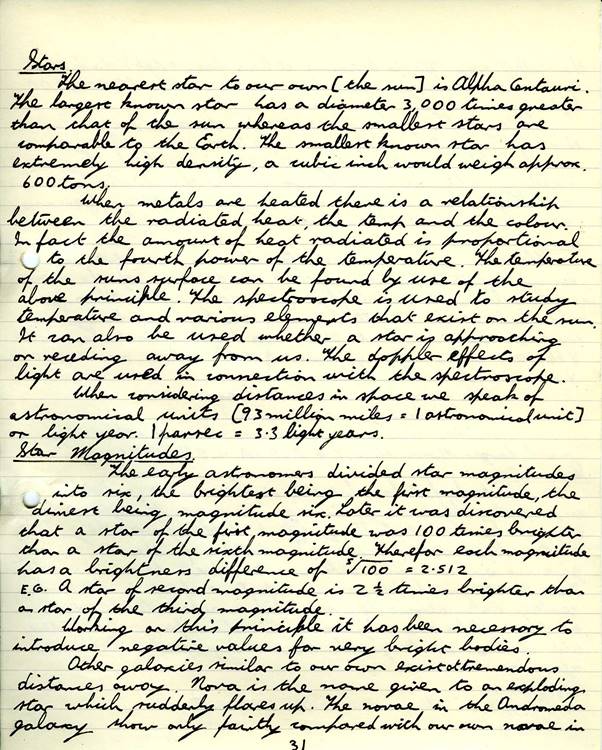 Stars.
The nearest star to our own [the sun] is Alpha Centauri.
The largest known star has a diameter 3,000 times greater
than that of the sun whereas the smallest stars are
comparable to the Earth. The smallest known star has
extremely high density, a cubic inch would weigh approx.
600 tons.
When metals are heated there is a relationship
between the radiated heat, the temp and the colour.
In fact the amount of heat radiated is proportional
to the fourth power of the temperature. The temperature
of the suns surface can be found by use of the
above principle. The spectroscope is used to study
temperature and various elements that exist on the sun.
It can also be used whether a star is approaching
or receding away from us. The doppler effects of
light are used in connection with the spectroscope.
When considering distances in space we speak of
astronomical units [93 million miles = 1 astronomical unit]
or light year. 1 parsec = 3.3 light years.
Star Magnitudes.
The early astronomers divided star magnitudes
into six, the brightest being the first magnitude, the
dimest being magnitude six. Later it was discovered
that a star of the first magnitude was 100 times brighter
than a star of the sixth magnitude. Therefor each magnitude
has a brightness difference of ⁵√100 = 2.512
E.G. A star of second magnitude is 2½ times brighter than
a star of the third magnitude.
Working on this principle it has been necessary to
introduce negative values for very bright bodies.
Other galaxies similar to our own exist at tremendous
distances away. Nova is the name given to an exploding
star which suddenly flares up. The novae, in the Andromeda
galaxy show only faintly compared with our own novae in
31